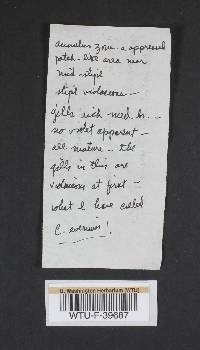 annulus zone - a appressed
patch-like area near
mid-stipe
stipe violaceous -
gills rich med. br. -
no violet apparent -
all mature - the
gills in this are
violaceous at first -
what I have called
C. evernius!
U. Washington Herbarium (WTU)
WTU-F-39687